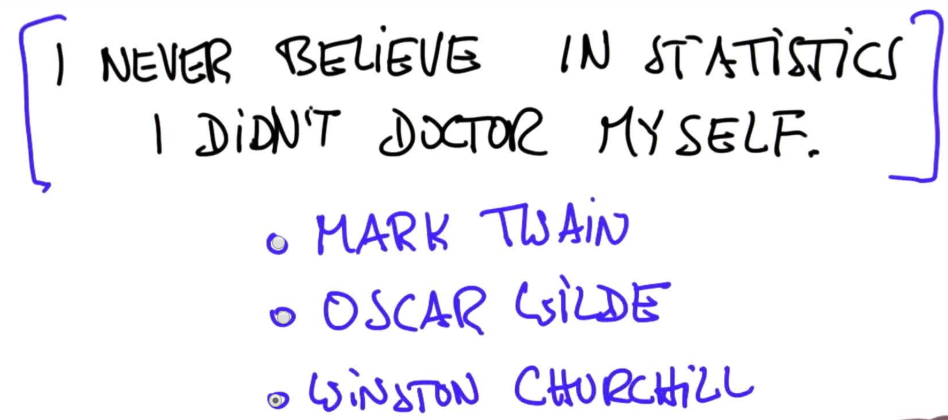 I NEVER BELIEVE IN STATISTICS
I DIDN'T DOCTOR MYSELF.
MARK TWAIN
OSCAR WILDE
WINSTON CHURCHILL